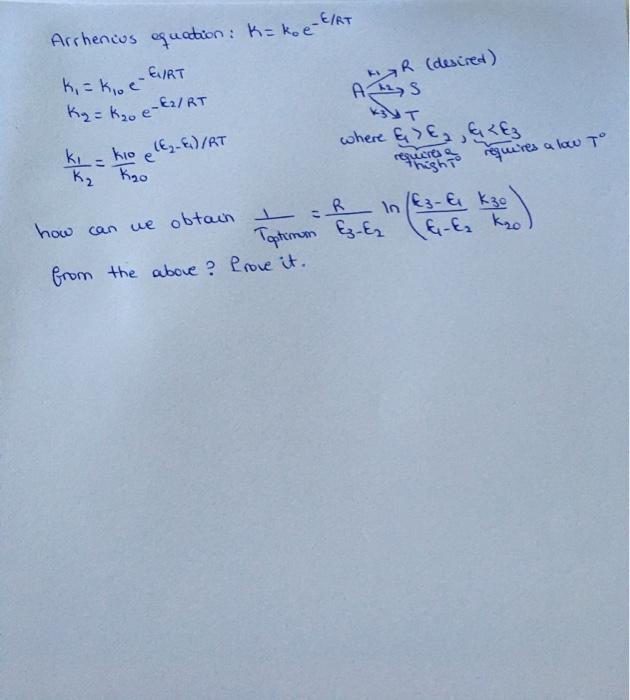 Arrhenius equation: K = k₀ e^-E/RT
K₁ = K₁₀ e^-E₁/RT
K₂ = K₂₀ e^-E₂/RT
K₁/K₂ = K₁₀/K₂₀ e^(E₂-E₁)/RT
K₁ R (desired)
A K₂ S
K₃ T
where E₁ > E₂ , E₁ < E₃
requires a high T° requires a low T°
how can we obtain 1/Toptimum = R/(E₃-E₂) ln (E₃-E₁/E₁-E₂ K₃₀/K₂₀)
from the above? Prove it.